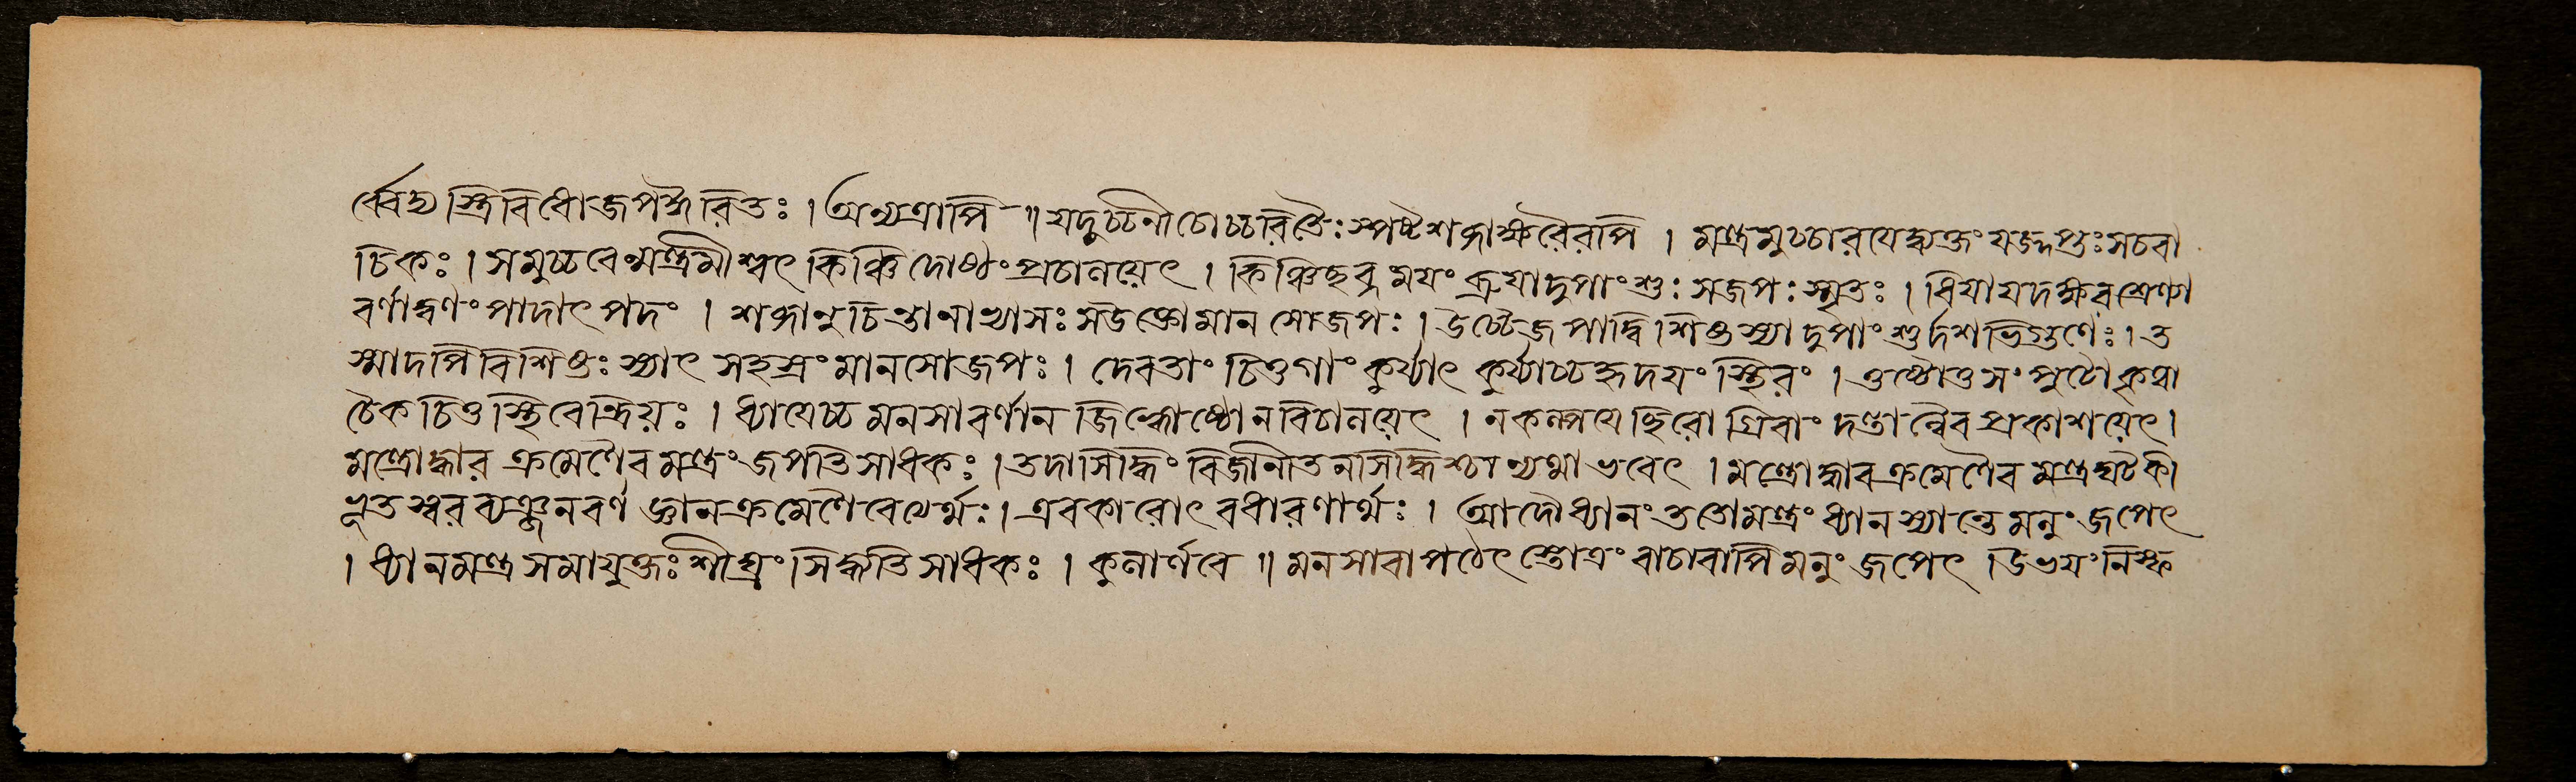 র্বেবদ্যস্ত্রিবিধোজপঈরিতঃ । অন্যত্রাপি ॥ যদুচ্চনীচোচ্চরিতৈঃস্পষ্টশব্দাক্ষরৈরপি । মন্ত্রমুচ্চারযেদ্ব্যক্তং যজ্জপ্তঃসচবা
চিকঃ । সমুচ্চরেন্মন্ত্রমীশ্বৎ কিঞ্চিদোষ্ঠং প্রচালয়েৎ । কিঞ্চিছব্দময়ং ব্রুযাদুপাংশুঃ সজপঃস্মৃতঃ । ধিযাযদক্ষরশ্রেণ্যা
বর্ণাদ্বর্ণং পাদাৎ পদং । শব্দানুচিন্তানাভ্যাসঃ সউক্তোমানসোজপঃ । উচ্চৈর্জপাদ্বিশিষ্ঠস্যাদুপাংশুর্দশভির্গুণৈঃ । ত
স্মাদপিবিশিষ্ঠঃ স্যাৎ সহস্রং মানসোজপঃ । দেবতাং চিত্তগাং কুর্য্যাৎ কুর্য্যাচ্চহৃদযং স্থিরং । ওষ্ঠৌতুসংপুটৌকৃত্বা
চৈকচিত্তস্থিরেন্দ্রিয়ঃ । ধ্যাযেচ্চমনসাবর্ণান জিহ্বোষ্ঠোনবিচালয়েৎ । নকম্পযেছিরোগ্রিবাং দন্তান্নৈবপ্রকাশয়েৎ ।
মন্ত্রোদ্ধারক্রমেণৈবমন্ত্রং জপতিসাধকঃ । তদাসিদ্ধিং বিজানীতনাসিদ্ধিশ্চান্যথাভবেৎ । মন্ত্রোদ্ধারক্রমেণৈব মন্ত্রঘটকী
ভূতস্বরব্যঞ্জনবর্ণজ্ঞানক্রমেণৈবেথের্থঃ । এবকারোৎবধারণার্থঃ । আদৌধ্যানং ততোমন্ত্রং ধ্যানস্যান্তেমনুং জপেৎ
। ধ্যানমন্ত্রসমাযুক্তঃশীঘ্রং সিদ্ধতিসাধকঃ । কুলার্ণবে ॥ মনসাবাপঠেৎস্তোত্রং বাচাবাপিমনুং জপেৎ । উভযংনিস্ফ